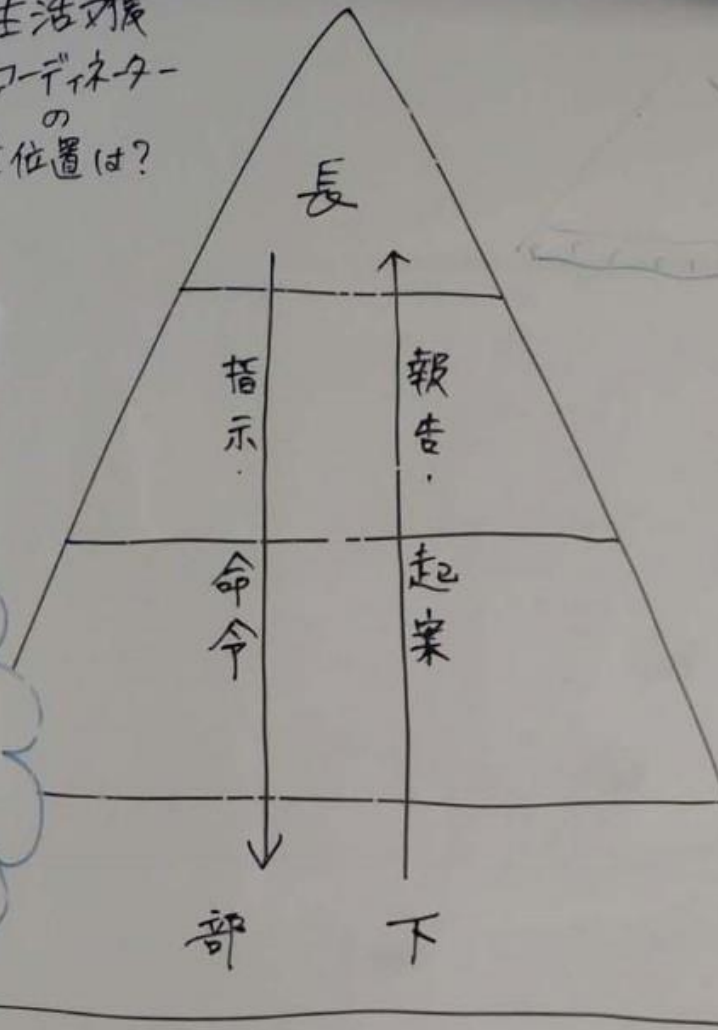 生活支援
コーディネーター
の
位置は?
長
指示・命令
報告・起案
部下